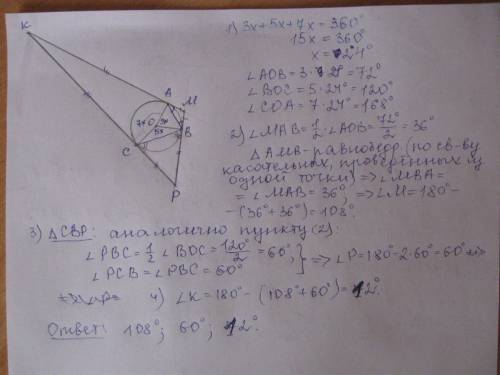 K
A
M
7x O 3x
5x
B
C
P
1) 3x+5x+7x=360°
15x=360°
x=24°
∠AOB=3·24°=72°
∠BOC=5·24°=120°
∠COA=7·24°=168°
2) ∠MAB=1/2·∠AOB=72°/2=36°
△AMB-равнобедр. (по св-ву
касательных, проведённых из
одной точки) ⇒∠MBA=
=∠MAB=36°, ⇒∠M=180°-
-(36°+36°)=108°.
3) △CBP: аналогично пункту (2):
∠PBC=1/2 ∠BOC=120°/2=60°;
∠PCB=∠PBC=60° } ⇒∠P=180°-2·60°=60°
4) ∠K=180°-(108°+60°)=12°.
Ответ: 108°; 60°; 12°.